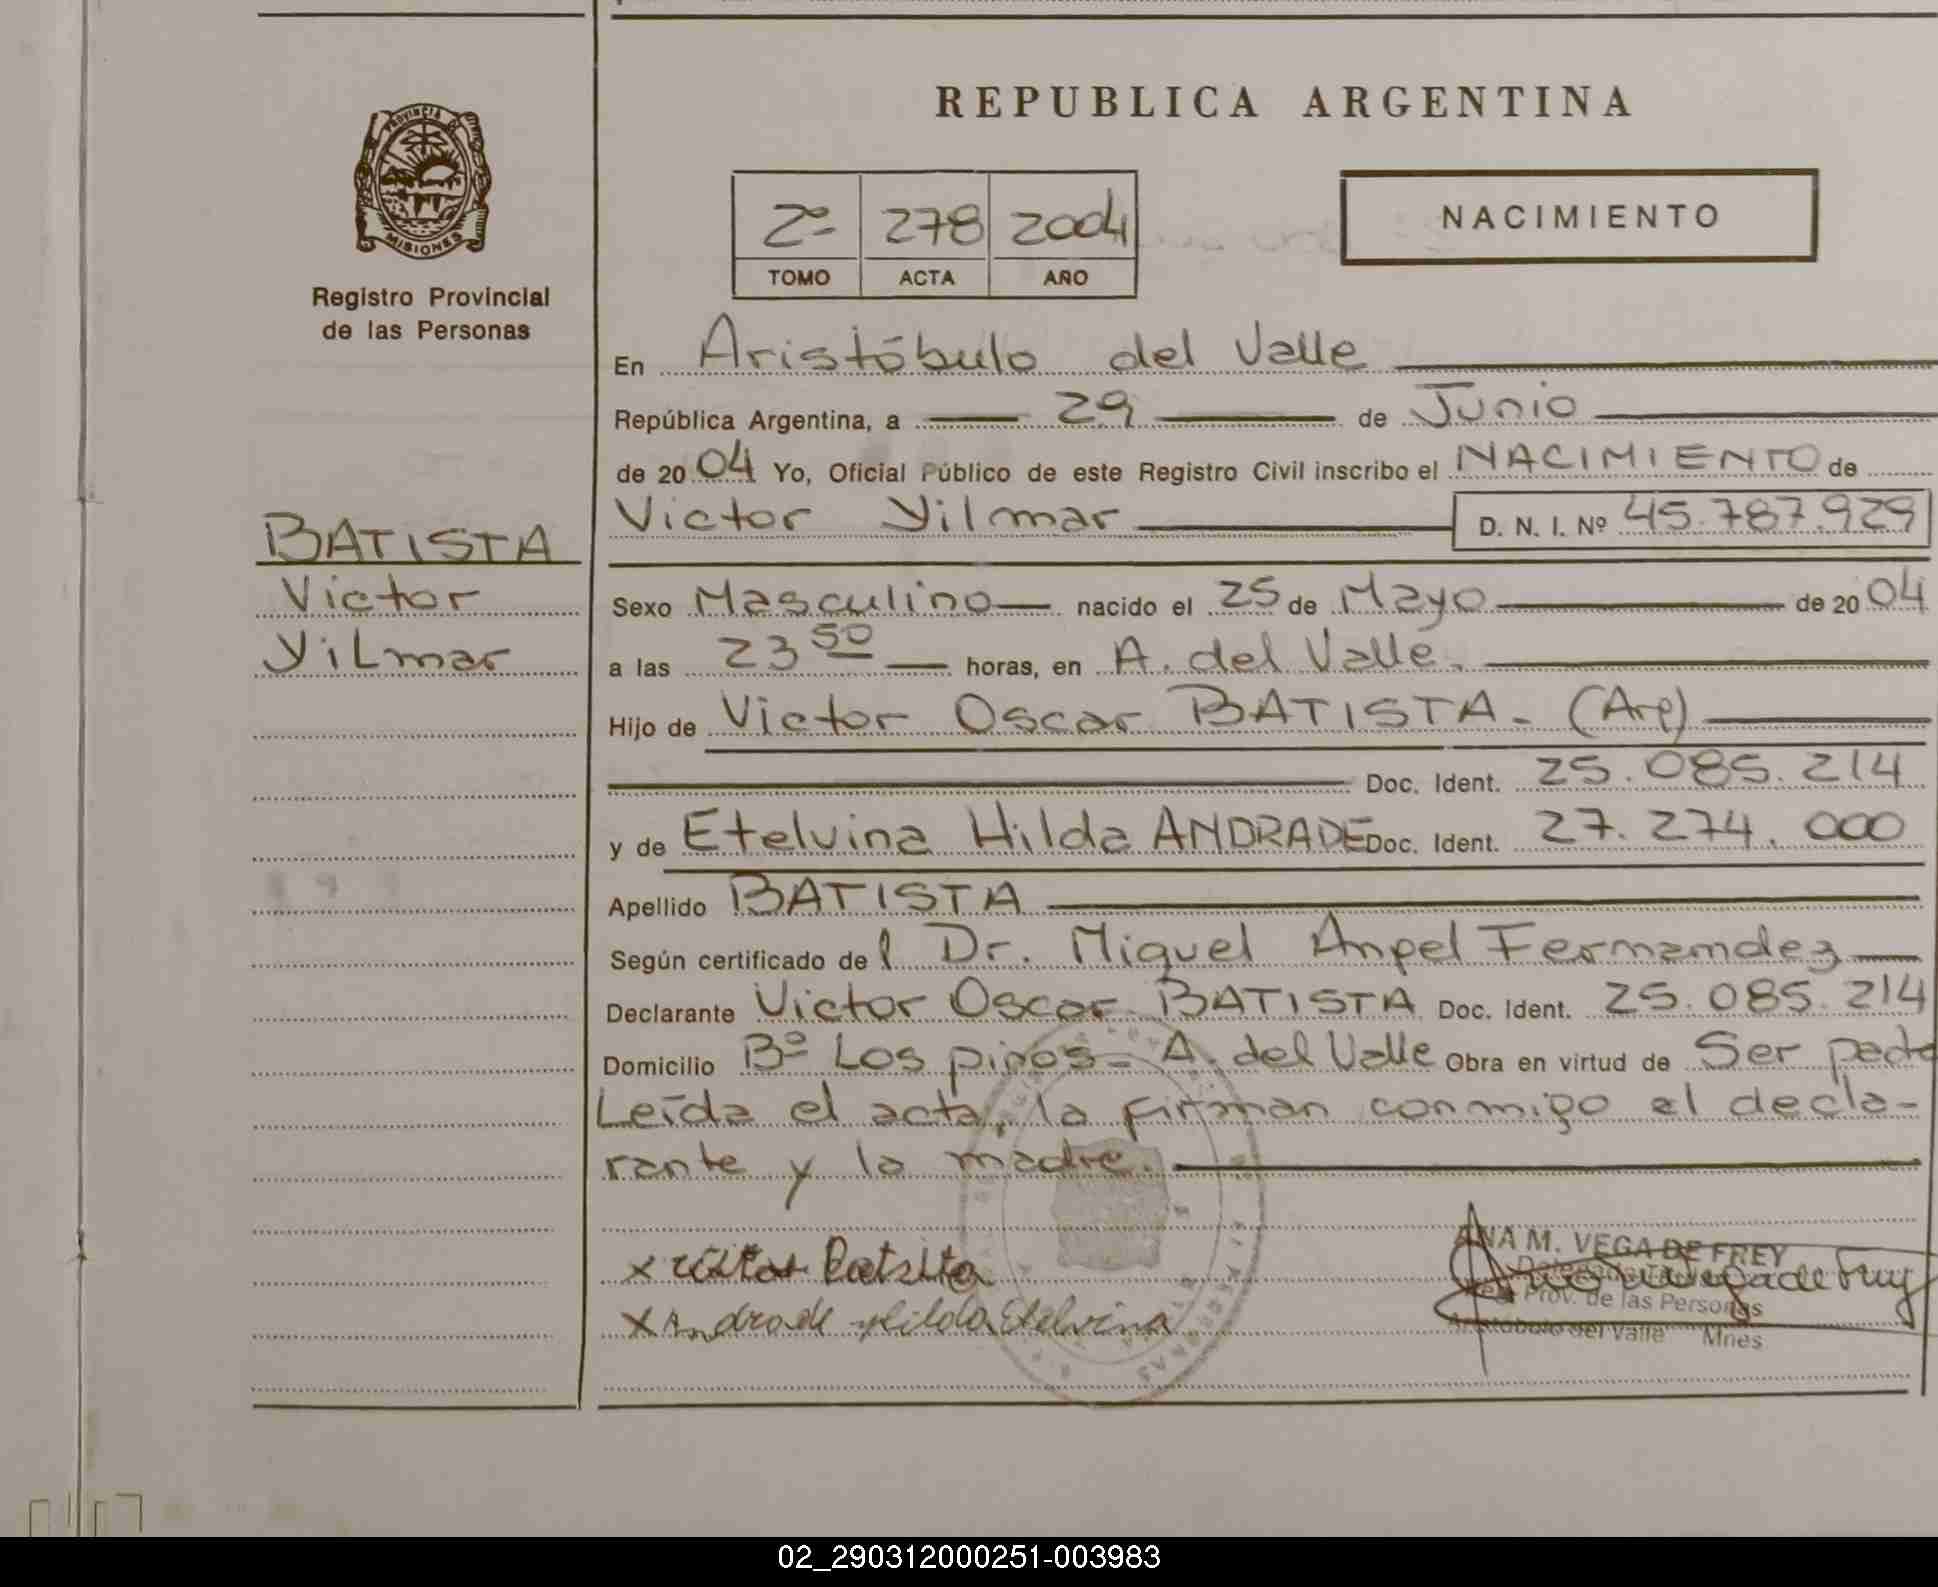 PROVINCIA DE
MISIONES
Registro Provincial
de las Personas
BATISTA
Victor
Yilmar
REPUBLICA ARGENTINA
2º 278 2004
TOMO ACTA AÑO
NACIMIENTO
En Aristóbulo del Valle
República Argentina, a 29 de Junio
de 2004 Yo, Oficial Público de este Registro Civil inscribo el NACIMIENTO de
Victor Yilmar D. N. I. Nº 45.787.929
Sexo Masculino nacido el 25 de Mayo de 2004
a las 23 50 horas, en A. del Valle.
Hijo de Victor Oscar BATISTA - (Arg)
Doc. Ident. 25.085.214
y de Etelvina Hilda ANDRADE Doc. Ident. 27.274.000
Apellido BATISTA
Según certificado del Dr. Miguel Angel Fernandez
Declarante Victor Oscar BATISTA Doc. Ident. 25.085.214
Domicilio Bº Los pinos - A. del Valle Obra en virtud de Ser padre
Leída el acta, la firman conmigo el decla-
rante y la madre.
ANA M. VEGA DE FREY
Reg. Prov. de las Personas
Aristóbulo del Valle Mnes
x Andrade Hilda Etelvina
02_290312000251-003983